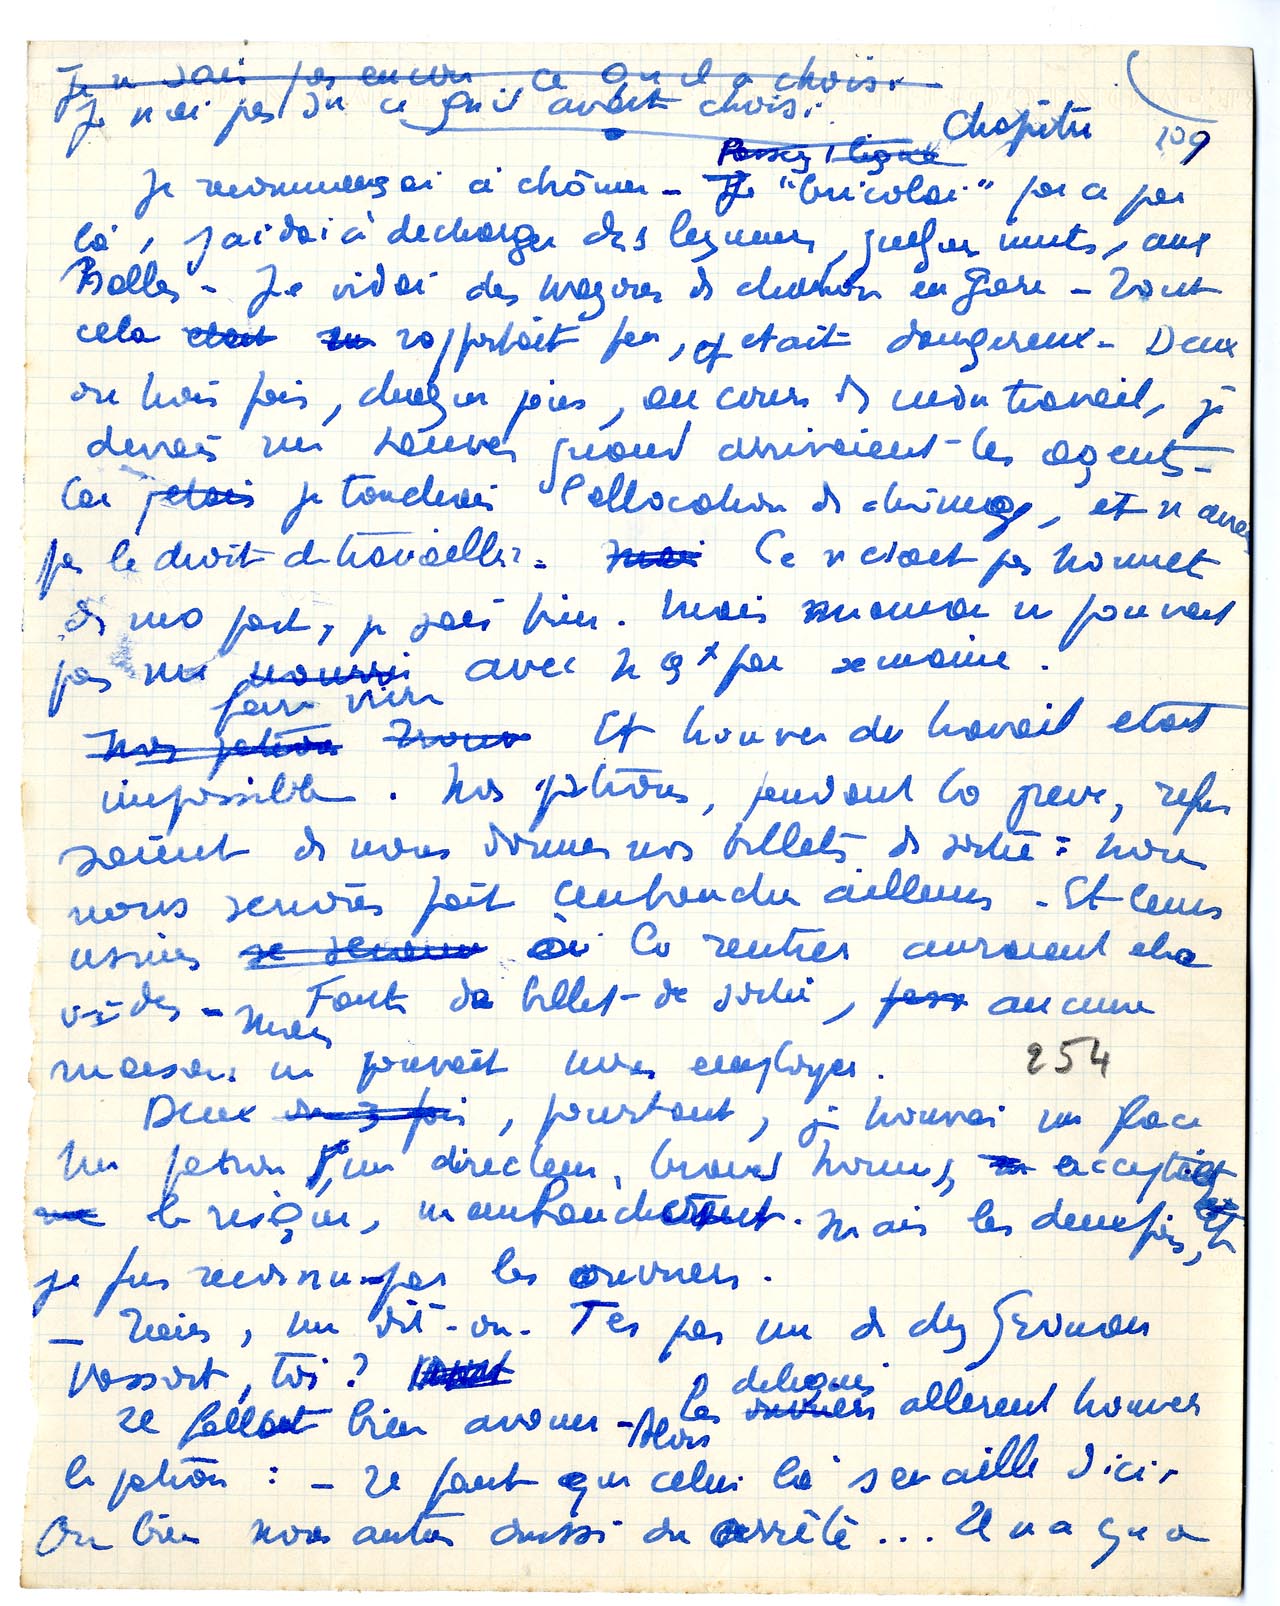 Je ne sais pas encore ce qu'il a choisi.
Je n'ai pas su ce qu'il avait choisi.
Chapitre 109
Passez 1 ligne
Je recommençai à chômer - Je "bricolai" par ci par
là, j'aidai à decharger des legumes, quelques nuits, aux
Halles - Je vidai des wagons de charbon en gare - Tout
cela etait rapportait peu, et etait dangereux - Deux
ou trois fois, chaque jour, au cours de mon travail, je
devais me sauver quand arrivaient les agents -
Car j'etais je touchais l'allocation de chômage, et n'avais
pas le droit de travailler. Mais Ce n'etait pas honnete
de ma part, je sais bien. Mais maman ne pouvait
pas me nourrir avec 49 x par semaine.
faire vivre
Nos patrons Trouver Et trouver du travail etait
impossible. Nos patrons, pendant la greve, refu
saient de nous donner nos billets de sortie : nous
nous serions fait embaucher ailleurs - Et leurs
usines à la rentrée auraient eté
vides - Mais Faute de billet de sortie, pas aucune
maison ne pouvait nous employer. 254
Deux ou 3 fois, pourtant, je trouvai une place
Un patron, un directeur, braves hommes, acceptaient
le risque, m'embauchaient. Mais les deux fois,
je fus reconnu par les ouvriers.
- Tiens, me dit-on - T'es pas un de chez Germon
Vassort, toi ?
Il fallait bien avouer - Alors Les ouvriers delegués allerent trouver
le patron : - Il faut que celui là s'en aille d'ici.
Ou bien nous autres aussi on arrête... Il n'a qu'à